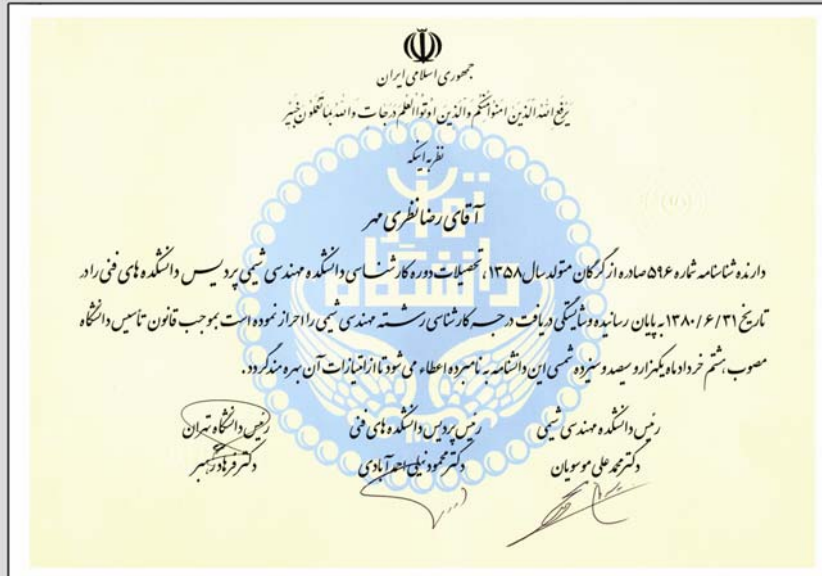 جمهوری اسلامی ایران
یرفع الله الذین امنوا منکم والذین اوتوا العلم درجات والله بما تعملون خبیر
نظر به اینکه
آقای رضا نظری مهر
دارنده شناسنامه شماره ۵۹۶ صادره از گرگان متولد سال ۱۳۵۸، تحصیلات دوره کارشناسی دانشکده مهندسی شیمی پردیس دانشکده های فنی را در
تاریخ ۱۳۸۰/۶/۳۱ به پایان رسانیده و شایستگی دریافت درجه کارشناسی رشته مهندسی شیمی را احراز نموده است بموجب قانون تأسیس دانشگاه
مصوب هشتم خرداد ماه یکهزار و سیصد و سیزده شمسی این دانشنامه به نامبرده اعطاء می شود تا از امتیازات آن بهره مند گردد.
رئیس دانشکده مهندسی شیمی رئیس پردیس دانشکده های فنی رئیس دانشگاه تهران
دکتر محمد علی موسویان دکتر محمود نیلی احمدآبادی دکتر فرهاد رهبر
دانشگاه تهران